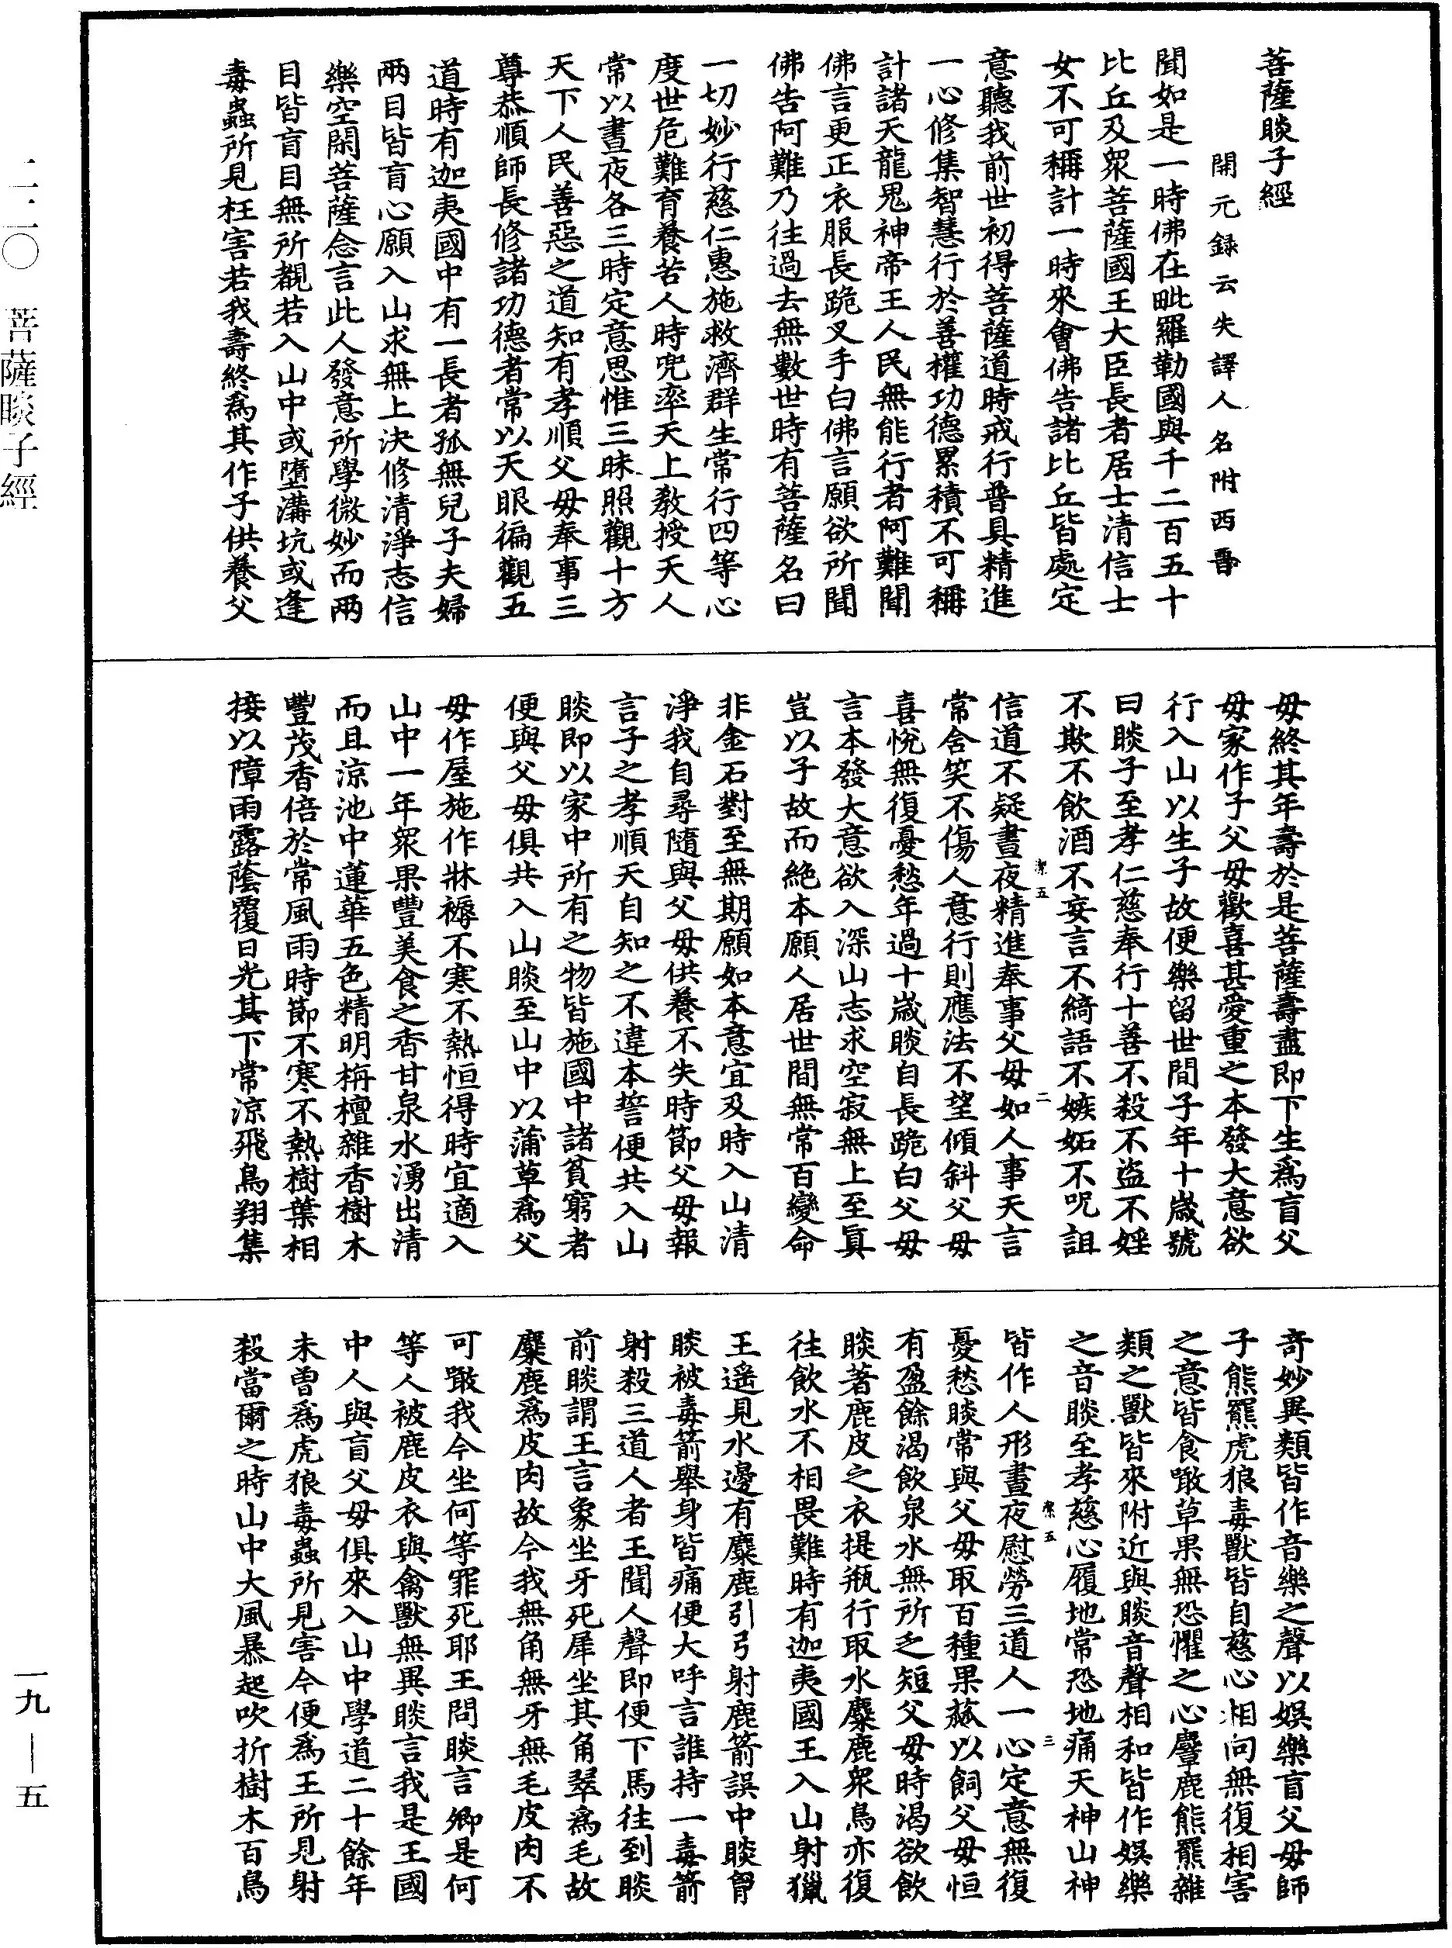 菩薩睒子經
開元録云失譯人名附西晉
聞如是一時佛在毗羅勒國與千二百五十
比丘及衆菩薩國王大臣長者居士清信士
女不可稱計一時來會佛告諸比丘皆處定
意聽我前世初得菩薩道時戒行普具精進
一心修集智慧行於善權功德累積不可稱
計諸天龍鬼神帝王人民無能行者阿難聞
佛言更正衣服長跪叉手白佛言願欲所聞
佛告阿難乃往過去無數世時有菩薩名曰
一切妙行慈仁惠施救濟群生常行四等心
度世危難育養苦人時兜率天上教授天人
常以晝夜各三時定意思惟三昧照觀十方
天下人民善惡之道知有孝順父母奉事三
尊恭順師長修諸功德者常以天眼徧觀五
道時有迦夷國中有一長者孤無兒子夫婦
兩目皆盲心願入山求無上決修清淨志信
樂空閑菩薩念言此人發意所學微妙而兩
目皆盲目無所覩若入山中或墮溝坑或逢
毒蟲所見枉害若我壽終爲其作子供養父
母終其年壽於是菩薩壽盡即下生爲盲父
母家作子父母歡喜甚愛重之本發大意欲
行入山以生子故便樂留世間子年十歲號
曰睒子至孝仁慈奉行十善不殺不盜不婬
不欺不飲酒不妄言不綺語不嫉妬不呪詛
潔五 二
信道不疑晝夜精進奉事父母如人事天言
常含笑不傷人意行則應法不望傾斜父母
喜悅無復憂愁年過十歲睒自長跪白父母
言本發大意欲入深山志求空寂無上至真
豈以子故而絶本願人居世間無常百變命
非金石對至無期願如本意宜及時入山清
淨我自尋隨與父母供養不失時節父母報
言子之孝順天自知之不違本誓便共入山
睒即以家中所有之物皆施國中諸貧窮者
便與父母俱共入山睒至山中以蒲草爲父
母作屋施作牀褥不寒不熱恒得時宜適入
山中一年衆果豐美食之香甘泉水湧出清
而且涼池中蓮華五色精明栴檀雜香樹木
豐茂香倍於常風雨時節不寒不熱樹葉相
接以障雨露蔭覆日光其下常涼飛鳥翔集
奇妙異類皆作音樂之聲以娛樂盲父母師
子熊羆虎狼毒獸皆自慈心相向無復相害
之意皆食噉草果無恐懼之心麞鹿熊羆雜
類之獸皆來附近與睒音聲相和皆作娛樂
之音睒至孝慈心履地常恐地痛天神山神
潔五 三
皆作人形晝夜慰勞三道人一心定意無復
憂愁睒常與父母取百種果蓏以飼父母恒
有盈餘渴飲泉水無所乏短父母時渴欲飲
睒著鹿皮之衣提瓶行取水麋鹿衆鳥亦復
往飲水不相畏難時有迦夷國王入山射獵
王遥見水邊有麋鹿引弓射鹿箭誤中睒胷
睒被毒箭舉身皆痛便大呼言誰持一毒箭
射殺三道人者王聞人聲即便下馬往到睒
前睒謂王言象坐牙死犀坐其角翠爲毛故
麋鹿爲皮肉故今我無角無牙無毛皮肉不
可噉我今坐何等罪死耶王問睒言卿是何
等人被鹿皮衣與禽獸無異睒言我是王國
中人與盲父母俱來入山中學道二十餘年
未曽爲虎狼毒蟲所見害今便爲王所見射
殺當爾之時山中大風暴起吹折樹木百鳥
二二〇 菩薩睒子經
一九—五